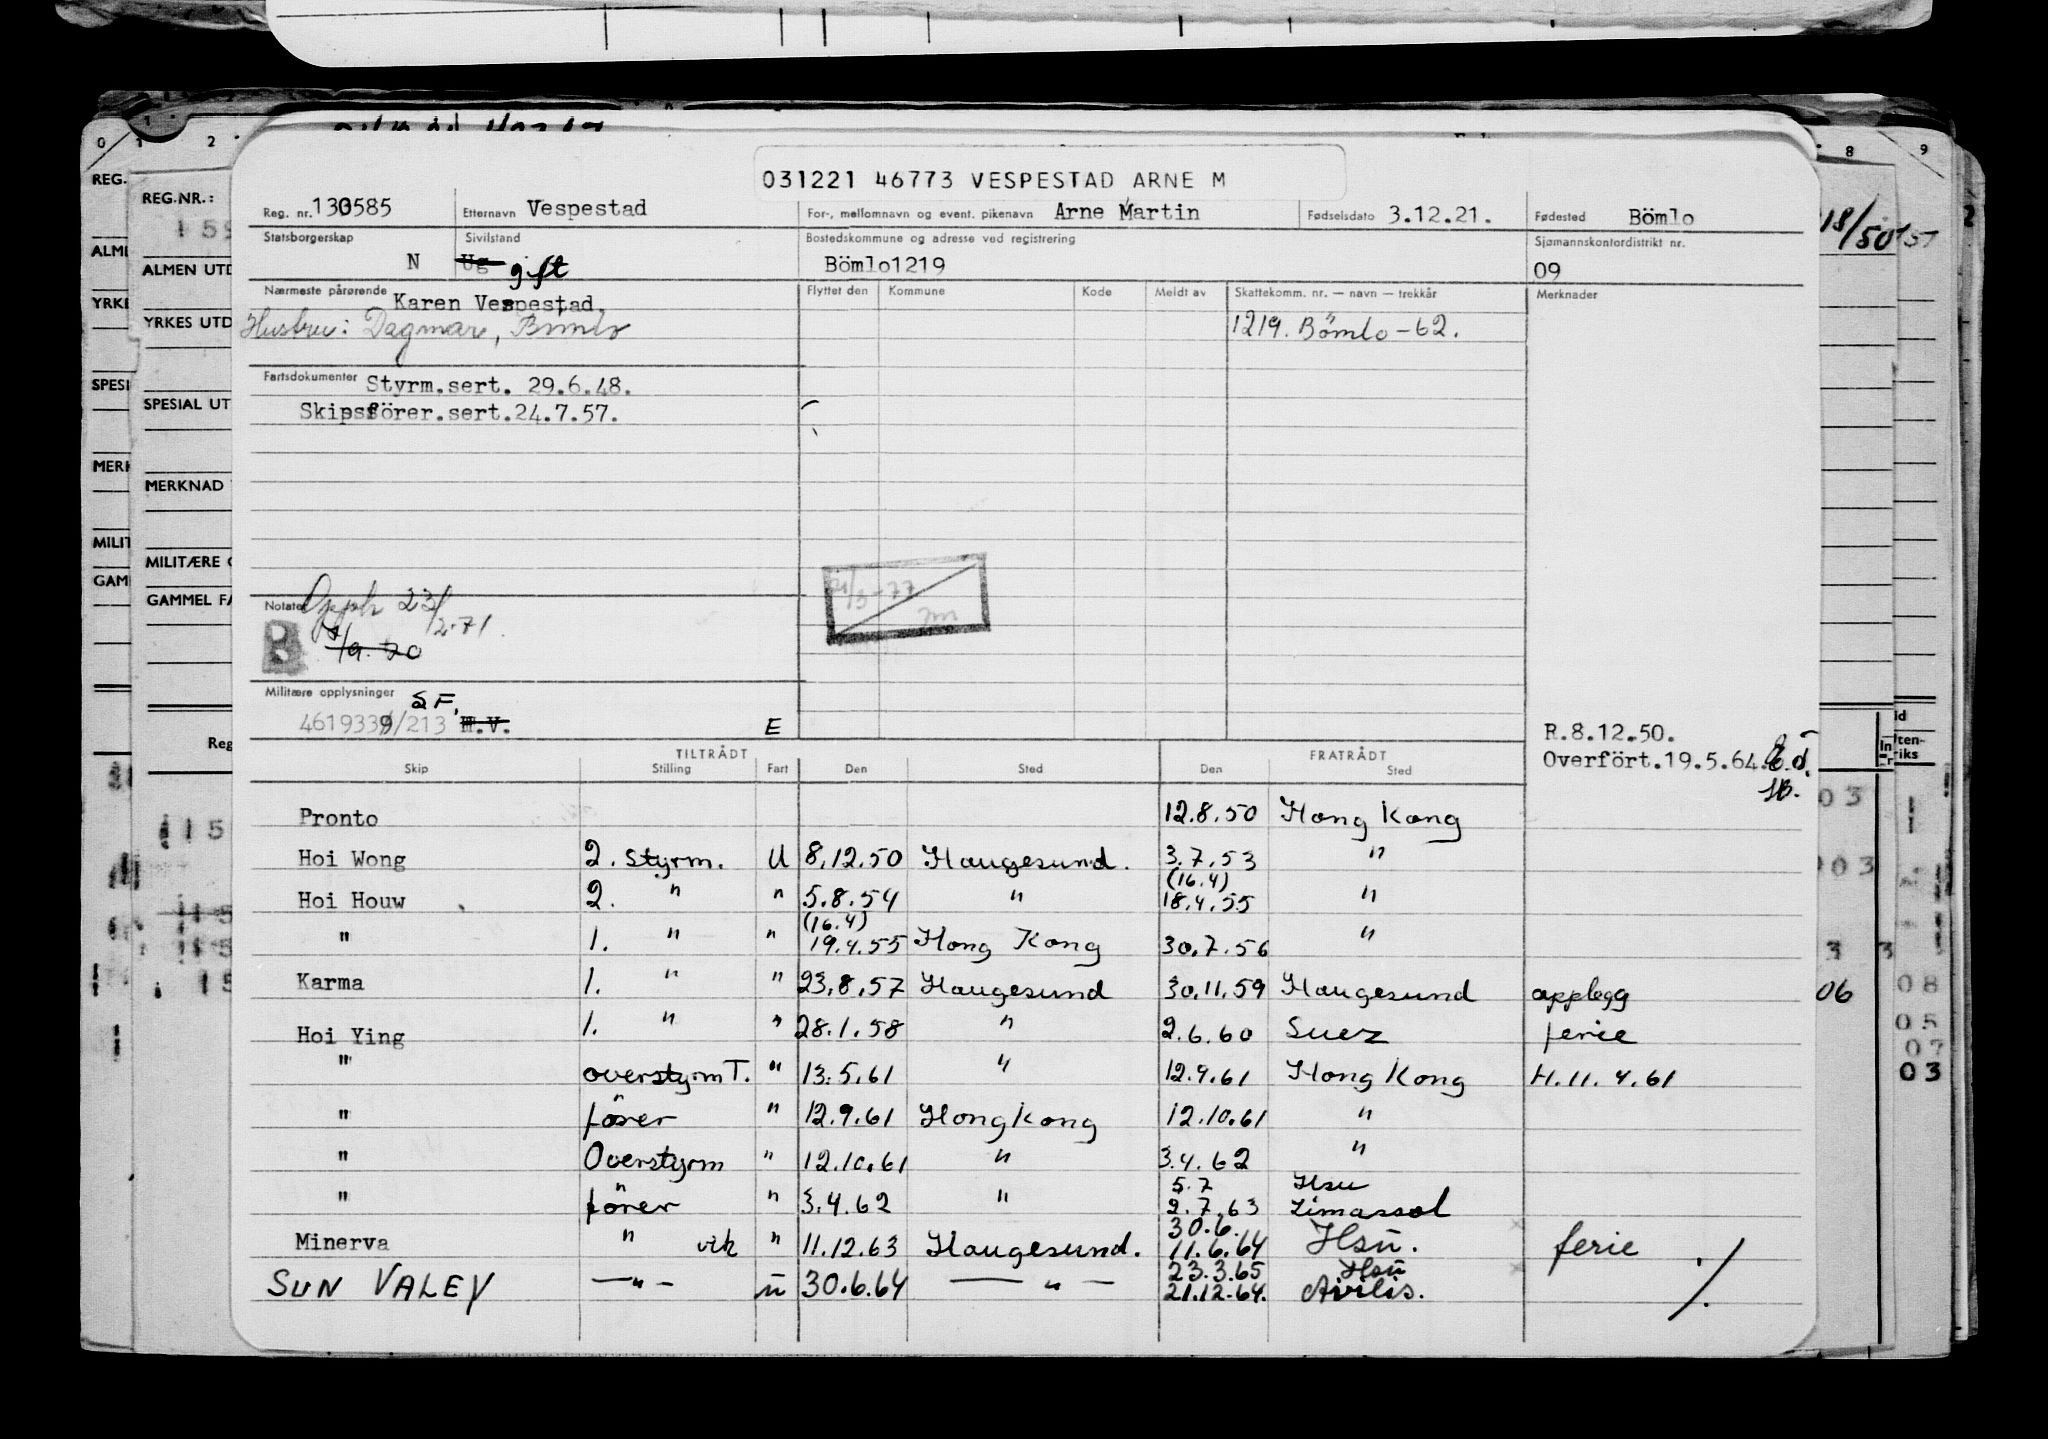 031221 46773 VESPESTAD ARNE M
Reg. nr. 130585 Etternavn Vespestad For-, mellomnavn og event. pikenavn Arne Martin Fødselsdato 3.12.21. Fødested Bömlo
Statsborgerskap N Sivilstand Ug gift Bostedskommune og adresse ved registrering Bömlo1219 Sjømannskontordistrikt nr. 09
Nærmeste pårørende Karen Vespestad. Flyttet den Kommune Kode Meldt av Skattekomm. nr. — navn — trekkår Merknader
Hustru: Dagmar, Bömlo 1219. Bömlo - 62.
Fartsdokumenter Styrm.sert. 29.6.48.
Skipsförer.sert.24.7.57.
Notater Opph 23/2-71
B 1/9-70
/3-77
Militære opplysninger SF.
4619339/213 H.V. E
R.8.12.50.
Overfört.19.5.64.
TILTRÅDT FRATRÅDT
Skip Stilling Fart Den Sted Den Sted
Pronto 12.8.50 Hong Kong
Hoi Wong 2. styrm. U 8.12.50 Haugesund. 3.7.53 "
Hoi Houw 2. " " 5.8.54 " (16.4) 18.4.55 "
" 1. " " (16.4) 19.4.55 Hong Kong 30.7.56 "
Karma 1. " " 23.8.57 Haugesund 30.11.59 Haugesund opplegg
Hoi Ying 1. " " 28.1.58 " 2.6.60 Suez ferie
" overstyrm T. " 13.5.61 " 12.9.61 Hong Kong H.11.4.61
" förer " 12.9.61 Hong Kong 12.10.61 "
" Overstyrm " 12.10.61 " 3.4.62 "
" förer " 3.4.62 " 5.7 Hsu
2.7.63 Limassol
Minerva " vik " 11.12.63 Haugesund. 30.6. 11.6.64 Hsu. ferie
SUN VALEY —"— u 30.6.64 —"— 23.3.65 Hsu
21.12.64. Avilis.
0 1 2 8 9
REG.
REG.NR.:
ALMEN UTD
YRKES UTD
SPESI
SPESIAL UT
MERKNAD
MILIT
MILITÆRE
GAM
GAMMEL FA
Reg
18/50
03
06
08
05
07
03